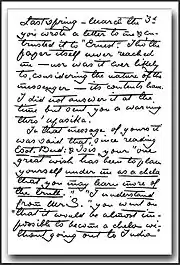 Last spring - March the 3d
you wrote a letter to me & en-
trusted it to "Ernest". Tho' the
paper itself never reached
me - nor was it ever likely
to, considering the nature of the
messenger - its contents have.
I did not answer it at the
time but sent you a warning
thro' Upasika.
In that message of yours it
was said that, since reading
Esot. Bud: & Isis your "one
great wish has been to place
yourself under me as a chela
that you may learn more of
the truth." "I understand
from Mr. S." you went on
"that it would be almost im-
possible to become a chela with-
out going out to India"